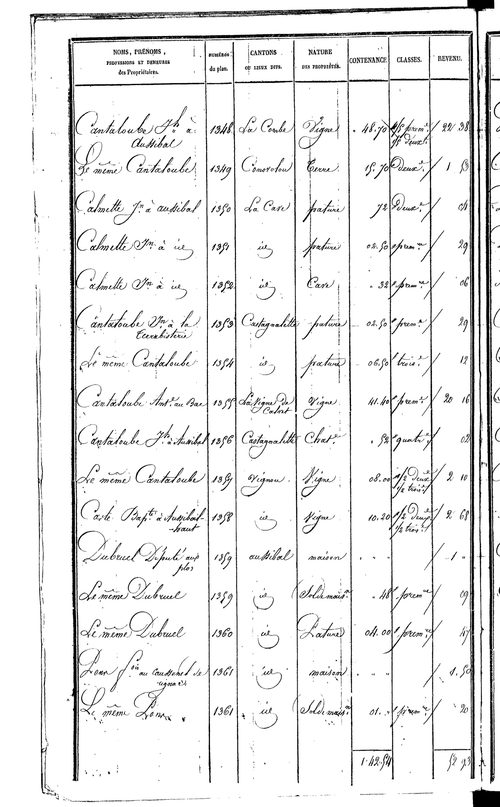 NOMS, PRÉNOMS, PROFESSIONS ET DEMEURES des Propriétaires. NUMÉROS du plan. CANTONS OU LIEUX DITS. NATURE DES PROPRIÉTÉS. CONTENANCE. CLASSES. REVENU.
Cantaloube Jh à Aussibal 1348 La Combe Vigne 48.70 prem.e deux.e 22 38
Le même Cantaloube 1349 Terre 15.70 Deux.e 1 53
Calmette Jn à aussibal 1350 La Case pature 72 Deux.e 04
Calmette Jn à id 1351 id pature 02.50 prem.re 29
Calmette Jn à id 1352 id Case .32 prem.re 06
Cantaloube Jn à la 1353 Castagnalette pature 02.50 prem.e 29
Le même Cantaloube 1354 id pature 06.50 trois.e 12
Cantaloube Ant.e au Bac 1355 La Vigne de Vigne 41.40 prem.e 20 16
Cantaloube Jh à Aussibal 1356 Castagnalette Chat.e .52 quatr.e 02
Le même Cantaloube 1357 Vignou Vigne 08.00 1/2 Deux.e 1/2 trois.e 2 10
Caste Bap.te à Aussibal-haut 1358 id Vigne 10.20 1/2 Deux.e 1/2 trois.e 2 68
Dubruel Député aux 1359 aussibal maison . . . 1 "
Le même Dubruel 1359 id Sol de mais.n .48 prem.e 09
Le même Dubruel 1360 id Pature 04.00 prem.re 47
1361 id maison . . . 1.50
Le même 1361 id Sol de mais.n 01. . prem.e 20
1.42.54 52 93